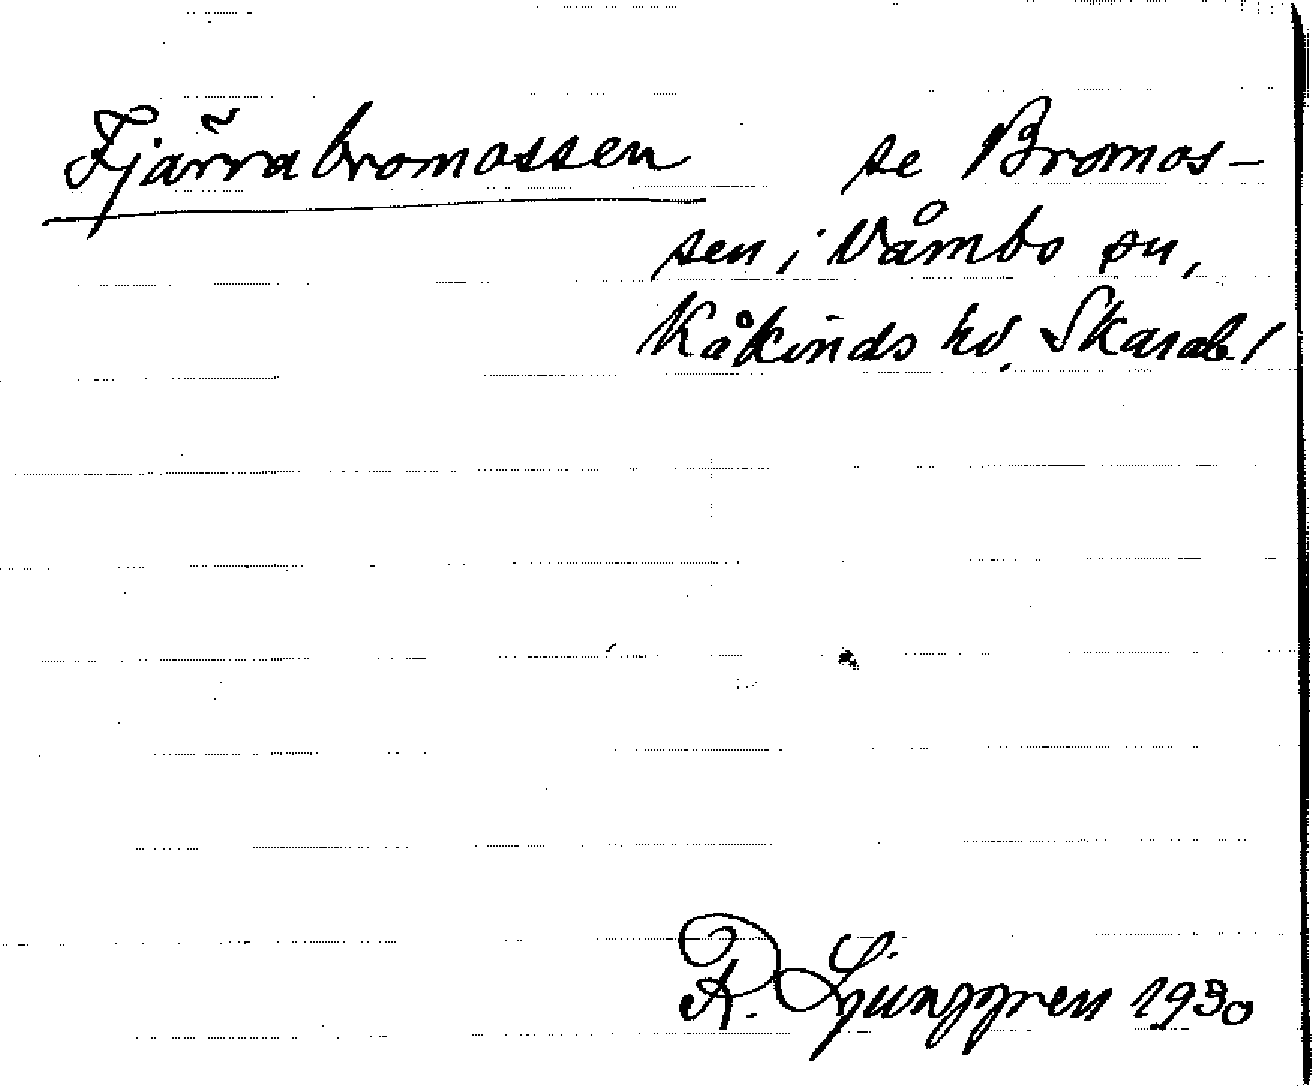 Fjärrabromossen se Bromos-
sen i Våmbs sn,
Kåkinds hd. Skarab. l
R. Ljunggren 1930